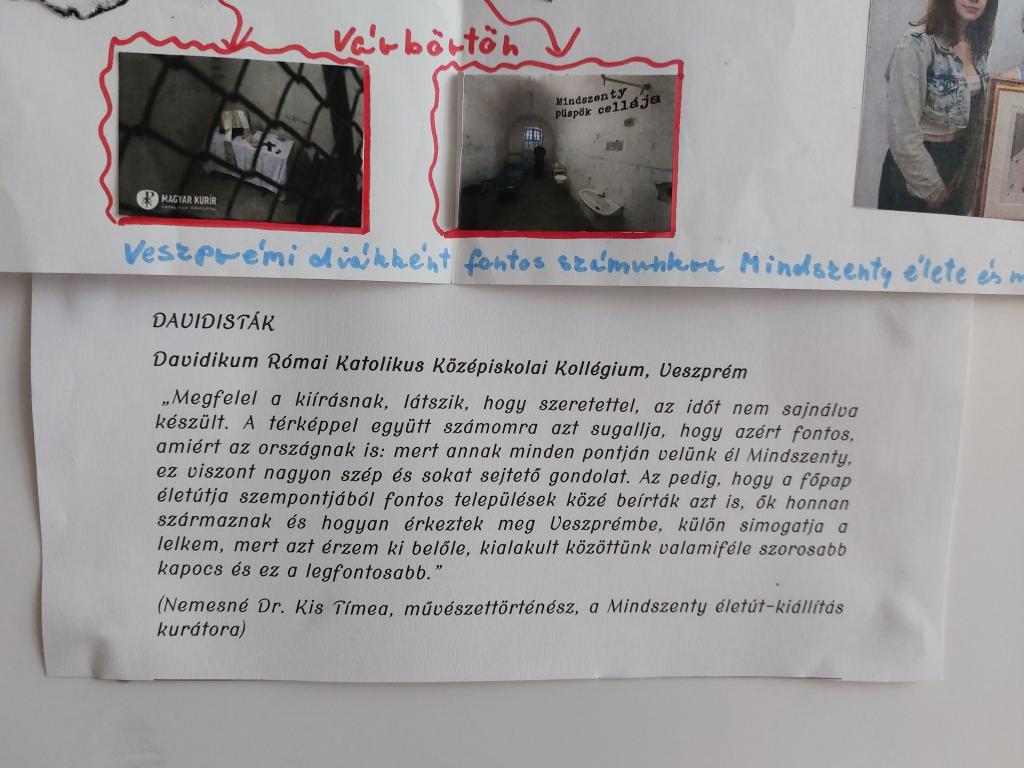 Várbörtön
MAGYAR KURÍR
Mindszenty
püspök cellája
Veszprémi diákként fontos számunkra Mindszenty élete és
DAVIDISTÁK
Davidikum Római Katolikus Középiskolai Kollégium, Veszprém
„Megfelel a kiírásnak, látszik, hogy szeretettel, az időt nem sajnálva
készült. A térképpel együtt számomra azt sugallja, hogy azért fontos,
amiért az országnak is: mert annak minden pontján velünk él Mindszenty,
ez viszont nagyon szép és sokat sejtető gondolat. Az pedig, hogy a főpap
életútja szempontjából fontos települések közé beírták azt is, ők honnan
származnak és hogyan érkeztek meg Veszprémbe, külön simogatja a
lelkem, mert azt érzem ki belőle, kialakult közöttünk valamiféle szorosabb
kapocs és ez a legfontosabb.”
(Nemesné Dr. Kis Tímea, művészettörténész, a Mindszenty életút-kiállítás
kurátora)